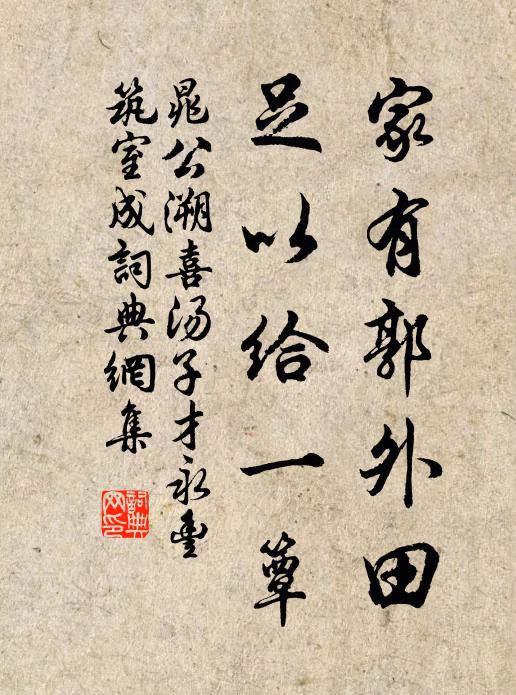 家有郭外田
足以给一簞
晁公溯喜汤子才永豊
筑室成詞典網集
詞典網印